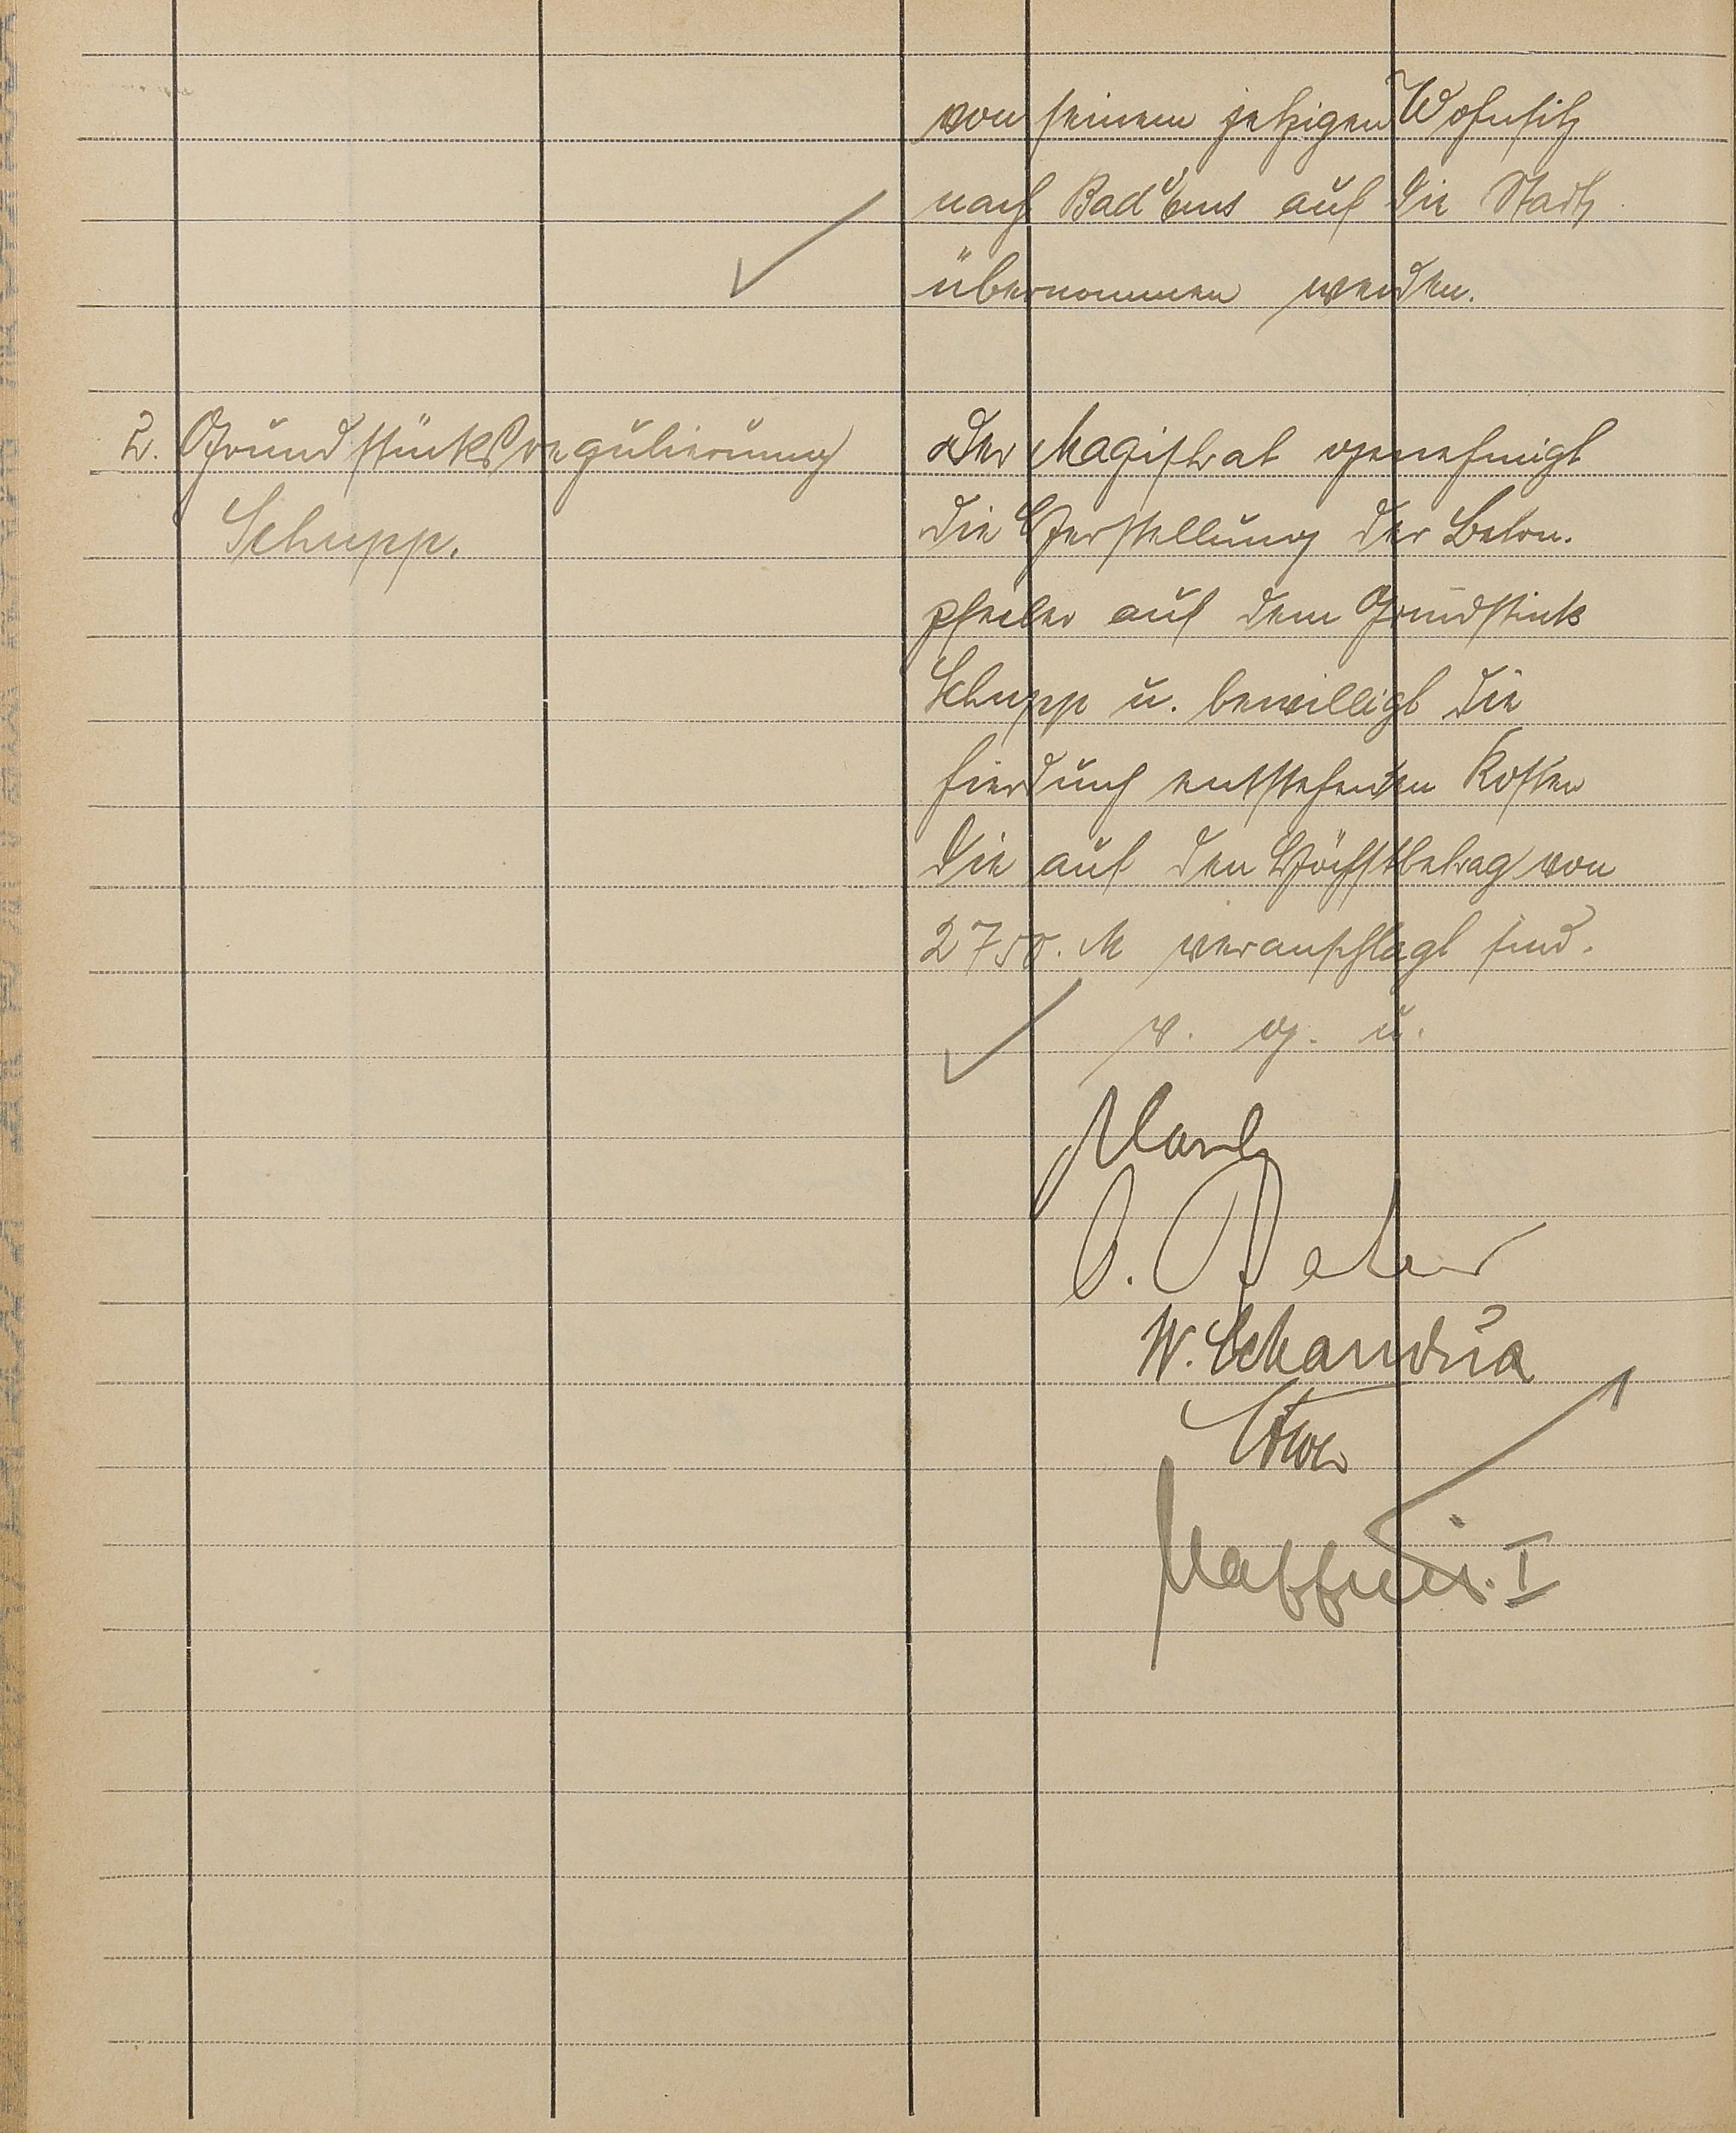 von seinem jetzigen Wohnsitz
nach Bad Ems auf die Stadt
übernommen werden.
2. Grundstücksregulierung
Schupp.
Der Magistrat genehmigt
die Herstellung der Beton.
pfeiler auf dem Grundstück
Schupp u. bewilligt die
hierdurch entstehenden Kosten
die auf den Höchstbetrag von
2750. M veranschlagt sind.
v. g. u.
W. Schandua
I